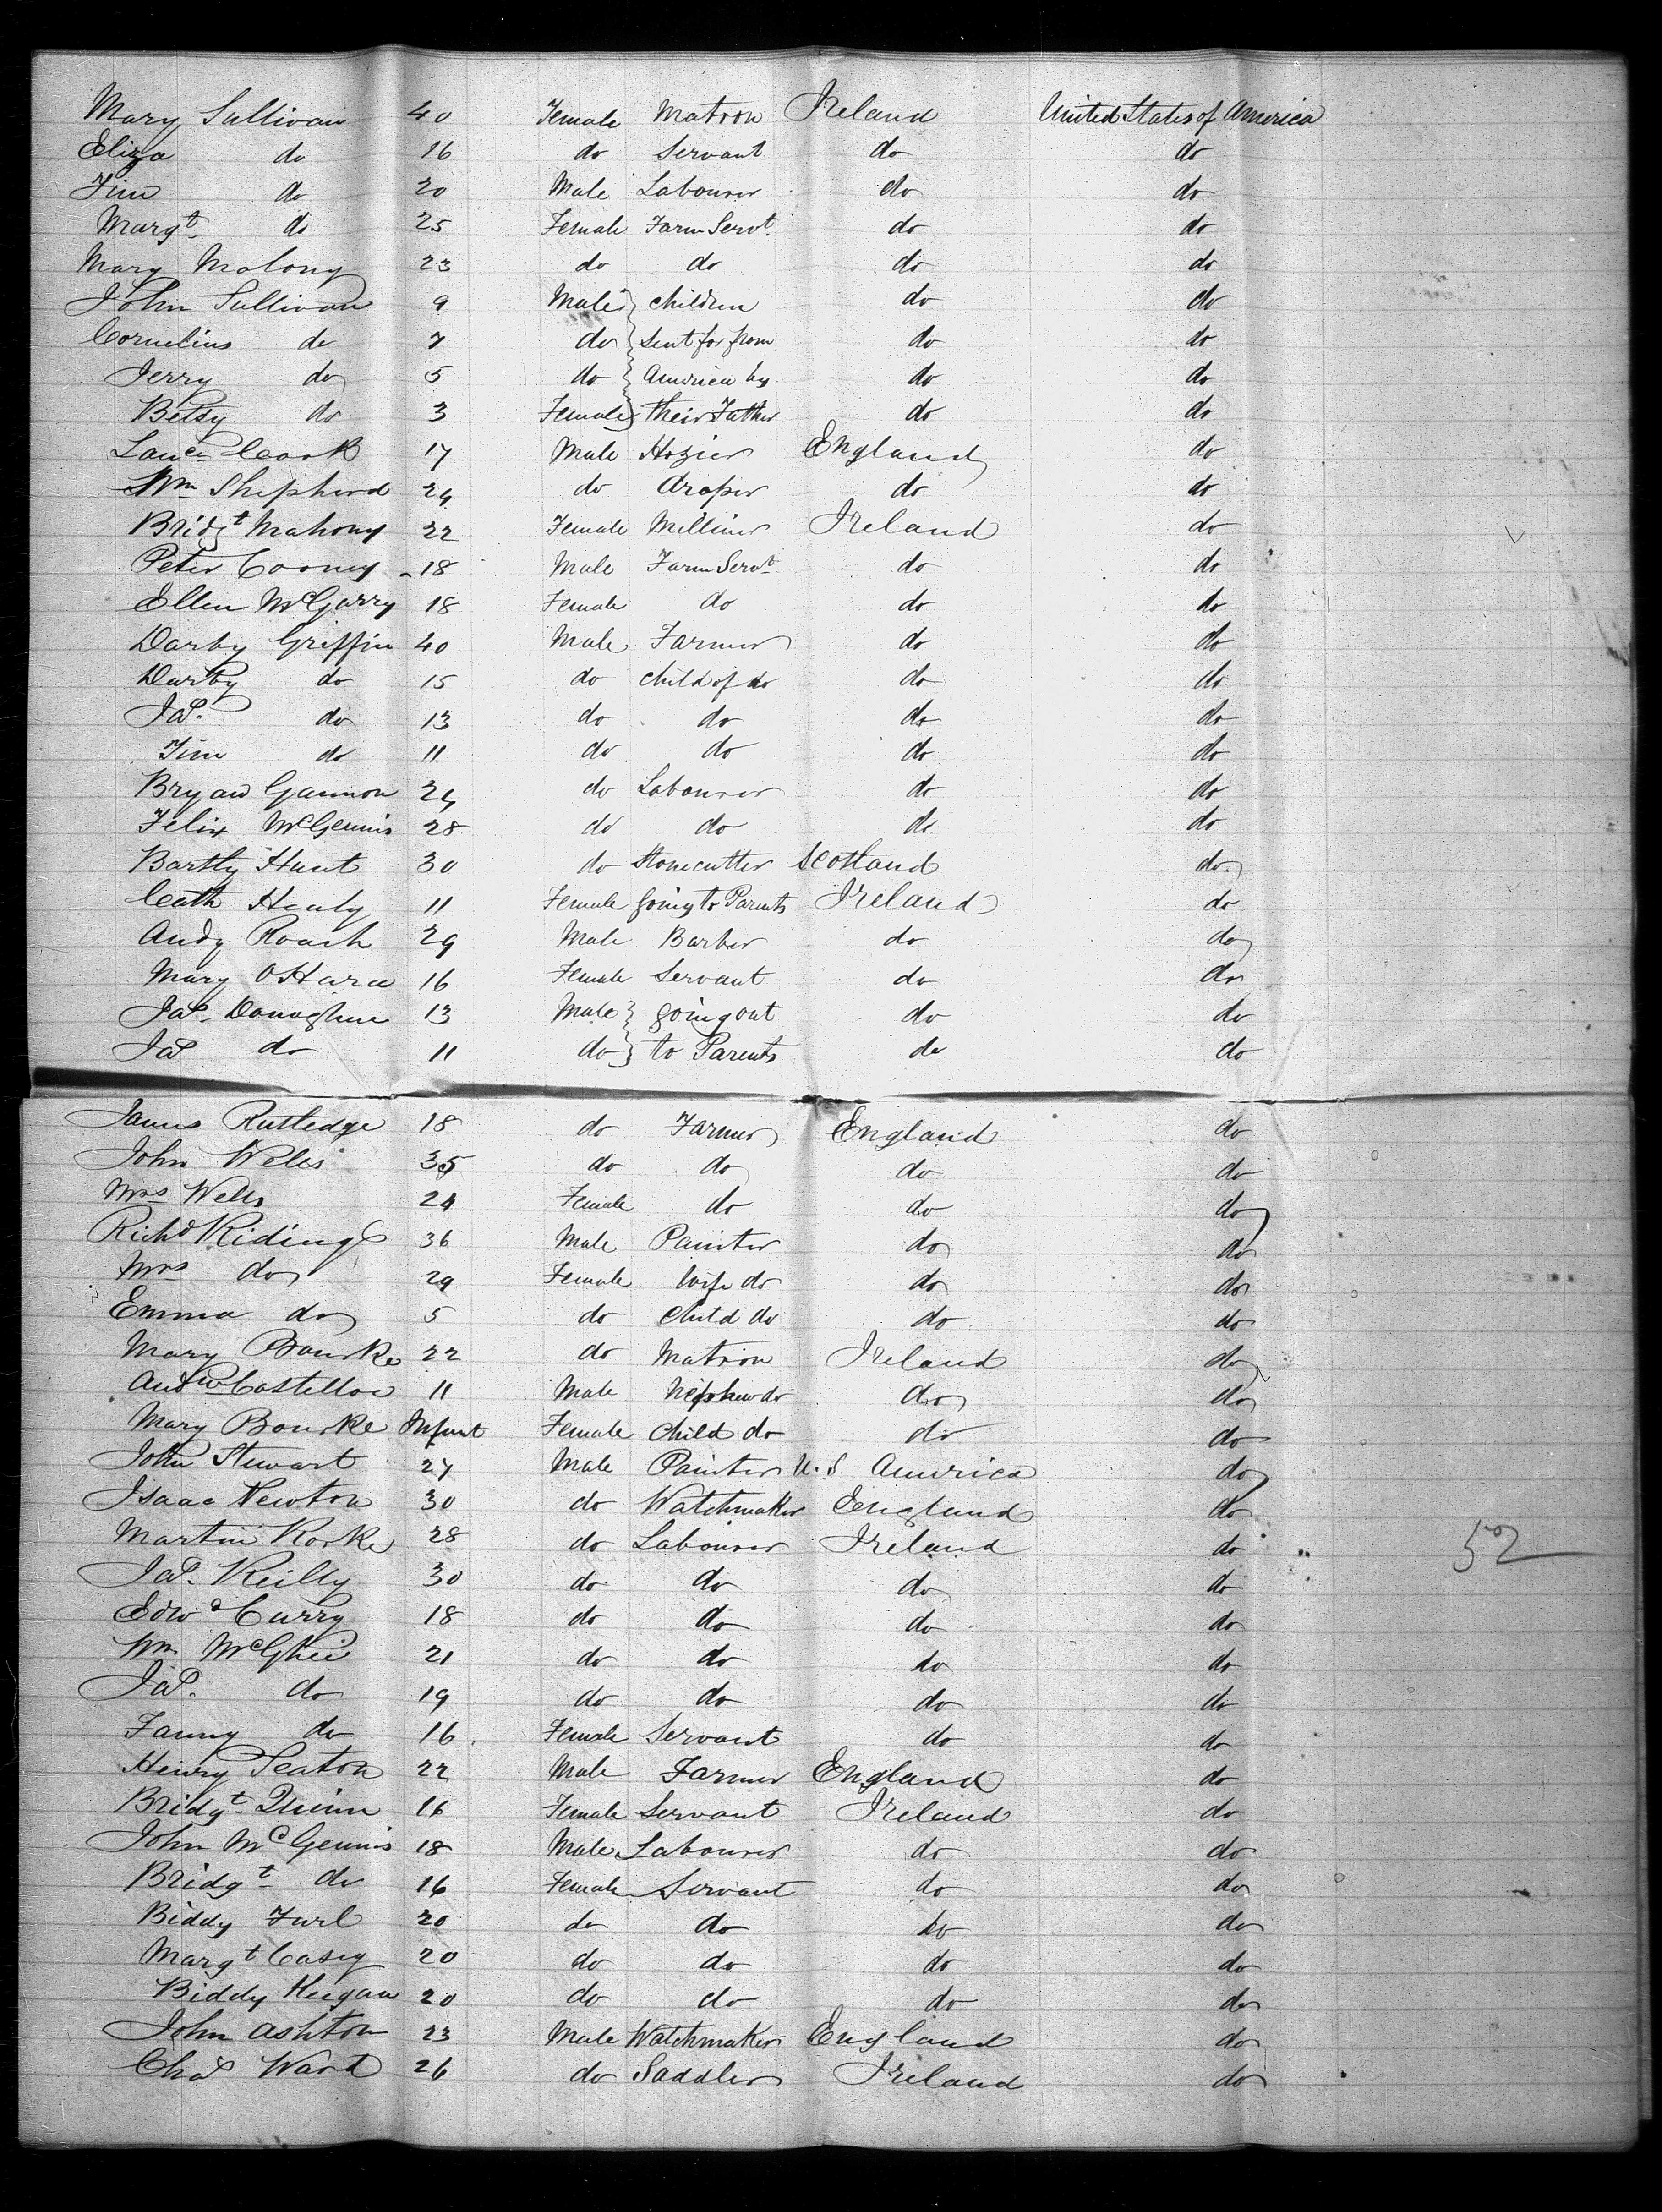 Mary Sullivan 40 Female Matron Ireland United States of America
Eliza do 16 do Servant do do
Tim do 20 Male Labourer do do
Margt do 25 Female Farm Servt do do
Mary Molony 23 do do do do
John Sullivan 9 Male children do do
Cornelius do 7 do sent for from do do
Jerry do 5 do America by do do
Betsy do 3 Female their Father do do
Lance Cook 17 Male Hozier England do
Wm Shepherd 24 do draper do do
Bridgt Mahony 22 Female Milliner Ireland do
Peter Cooney 18 Male Farm Servt do do
Ellen McGarry 18 Female do do do
Darby Griffin 40 Male Farmer do do
Darby do 15 do child of do do do
Jas. do 13 do do do do
Tim do 11 do do do do
Bryan Gannon 24 do Labourer do do
Felix McGennis 28 do do do do
Bartly Hunt 30 do Stonecutter Scotland do
Cath Healy 11 Female going to Parents Ireland do
Andy Roach 29 Male Barber do do
Mary OHara 16 Female Servant do do
Jas. Donoghue 13 Male going out do do
Jas do 11 do to Parents do do
James Rutledge 18 do Farmer England do
John Wells 35 do do do do
Mrs Wells 24 Female do do do
Richd Riding 36 Male Painter do do
Mrs do 29 Female Wife do do do
Emma do 5 do child do do do
Mary Bourke 22 do Matron Ireland do
Andw Costelloe 11 Male Nephew do do do
Mary Bourke Infant Female Child do do do
John Stewart 27 Male Painter U.S America do
Isaac Newton 30 do Watchmaker England do
Martin Rorke 28 do Labourer Ireland do 52
Jas. Reilly 30 do do do do
Edwd Curry 18 do do do do
Wm McGhie 21 do do do do
Jas. do 19 do do do do
Fanny do 16 Female Servant do do
Henry Seaton 22 Male Farmer England do
Bridgt Quinn 16 Female Servant Ireland do
John McGennis 18 Male Labourer do do
Bridgt do 16 Female Servant do do
Biddy Furl 20 do do do do
Margt Casey 20 do do do do
Biddy Keegan 20 do do do do
John Ashton 23 Male Watchmaker England do
Chas Ward 26 do Saddler Ireland do